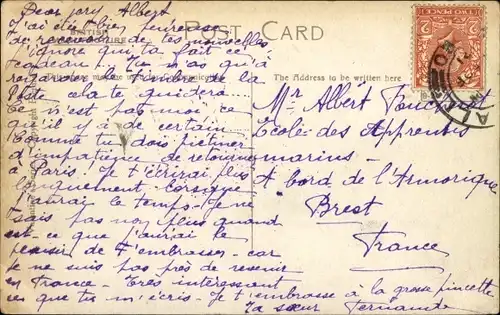 Dear jory Albert
J'ai été bien heureuse
de recevoir de tes nouvelles
J'ignore qui t'a fait ce
cadeau... Tu n'as qu'à
regarder le timbre de la
cela te guidera
ce n'est pas moi ce
qu'il y a de certain
Comme tu dois piétiner
d'impatience de retourner
à Paris. Je t'écrirai plus
longuement lorsque
j'aurai le temps. Je ne
sais pas non plus quand
est-ce que j'aurai le
plaisir de t'embrasser car
je ne suis pas près de revenir
en France. Très intéressant
ce que tu m'écris. Je t'embrasse à la grosse pincette
Ta sœur Fernande
POST CARD
BRITISH
The Address to be written here
TWO PENCE
Mr Albert
École des Apprentis
marins
A bord de l'Armorique
Brest
France